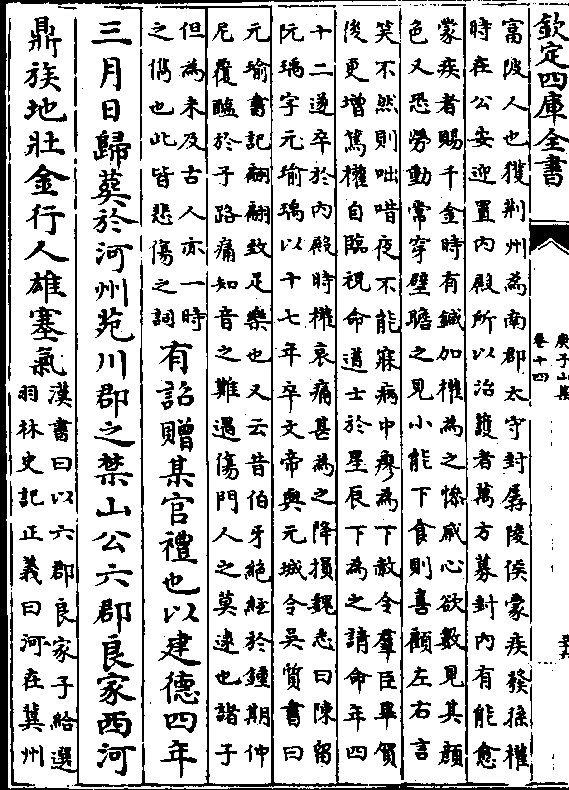 欽定四庫全書
庚子山集
卷十四
富陂人也獲荆州為南郡太守封孱陵侯蒙疾發孫權
時在公安迎置内殿所以治護者萬方募封内有能愈
蒙疾者賜千金時有鍼加權為之慘慼心欲數見其顔
色又恐勞動常穿壁瞻之見小能下食則喜顧左右言
笑不然則咄唶夜不能寐病中瘳為下赦令羣臣畢賀
後更增篤權自臨視命道士於星辰下為之請命年四
十二遂卒於内殿時權哀痛甚為之降損魏志曰陳留
阮瑀字元瑜瑀以十七年卒文帝與元城令吳質書曰
元瑜書記翩翩致足樂也又云昔伯牙絶絃於鍾期仲
尼覆醢於子路痛知音之難遇傷門人之莫逮也諸子
但為未及古人亦一時
之儁也此皆悲傷之詞
有詔贈某官禮也以建德四年
三月日歸葬於河州苑川郡之禁山公六郡良家西河
鼎族地壯金行人雄塞氣
漢書曰以六郡良家子給選
羽林史記正義曰河在冀州